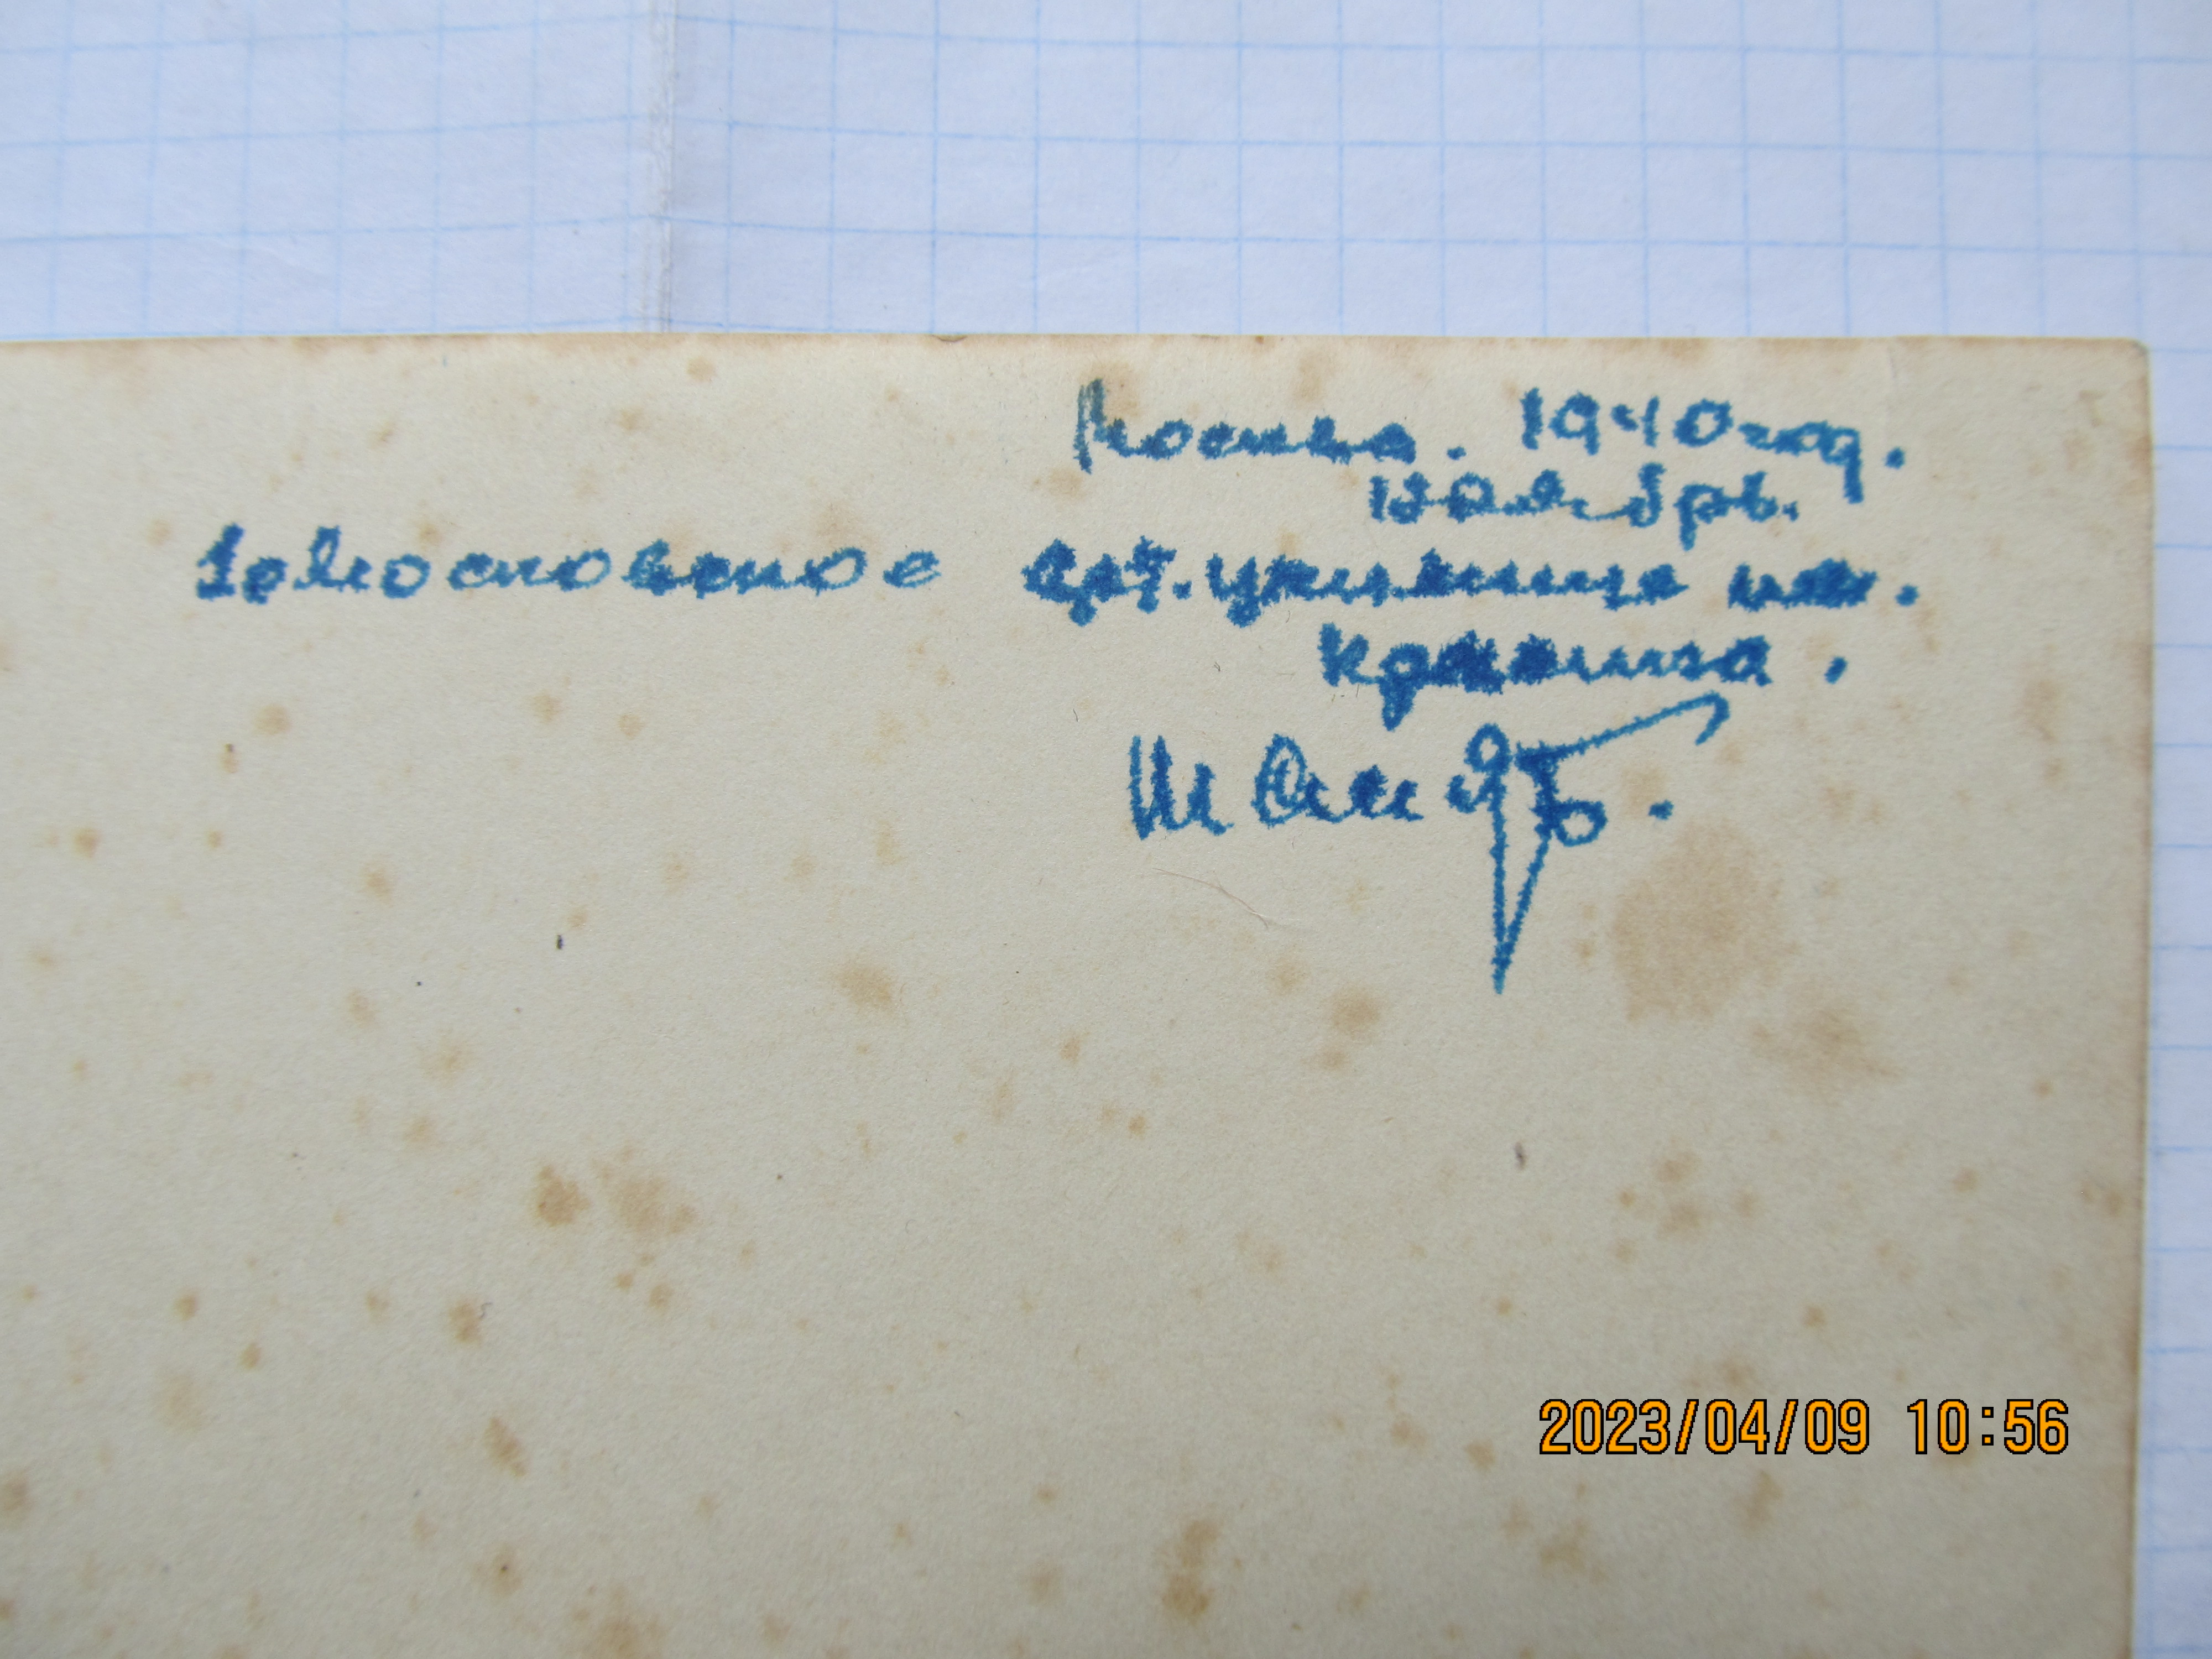 Москва. 1940 год.
ноябрь.
1е Московское арт. училище им.
Красина.
2023/04/09 10:56